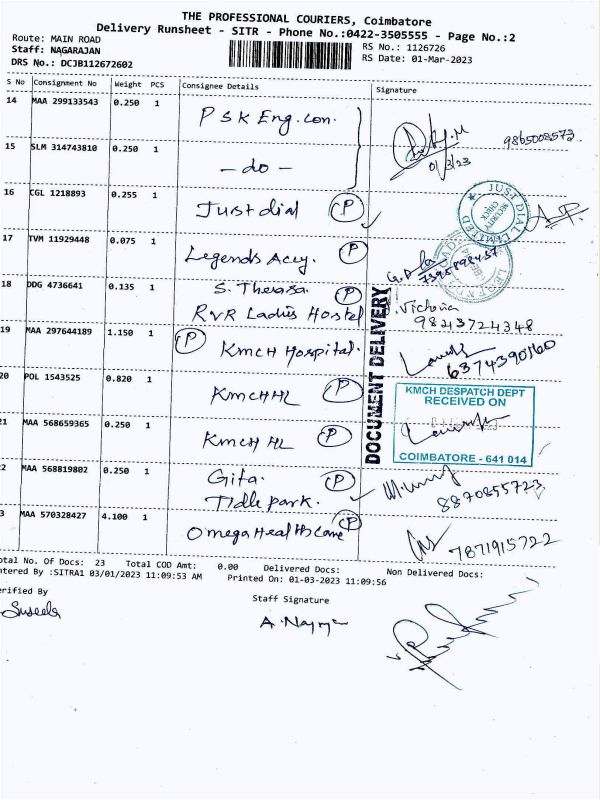 THE PROFESSIONAL COURIERS, Coimbatore
Delivery Runsheet - SITR - Phone No.:0422-3505555 - Page No.:2
Route: MAIN ROAD RS No.: 1126726
Staff: NAGARAJAN RS Date: 01-Mar-2023
DRS No.: DCJB112672602
S No Consignment No Weight PCS Consignee Details Signature
14 MAA 299133543 0.250 1 PSK Eng. Con. 9865008573
15 SLM 314743810 0.250 1 - do - 01/3/23
16 CGL 1218893 0.255 1 Just dial P
JUST DIAL LIMITED SECURITY CHECK
17 TVM 11929448 0.075 1 Legends Acey. P 7395898457
18 DDG 4736641 0.135 1 S. Theresa P
RVR Ladies Hostel Victoria
9843724348
19 MAA 297644189 1.150 1 P KMCH Hospital. 6374390160
20 POL 1543525 0.820 1 KMCH HL P
DOCUMENT DELIVERY
KMCH DESPATCH DEPT
RECEIVED ON
COIMBATORE - 641 014
21 MAA 568659365 0.250 1 KMCH HL P
2 MAA 568819802 0.250 1 Gita. P
Tidle park. 8870855723
3 MAA 570328427 4.100 1 Omega Healthcare P 7871915722
otal No. Of Docs: 23 Total COD Amt: 0.00 Delivered Docs: Non Delivered Docs:
ntered By :SITRA1 03/01/2023 11:09:53 AM Printed On: 01-03-2023 11:09:56
erified By Staff Signature
Suseela